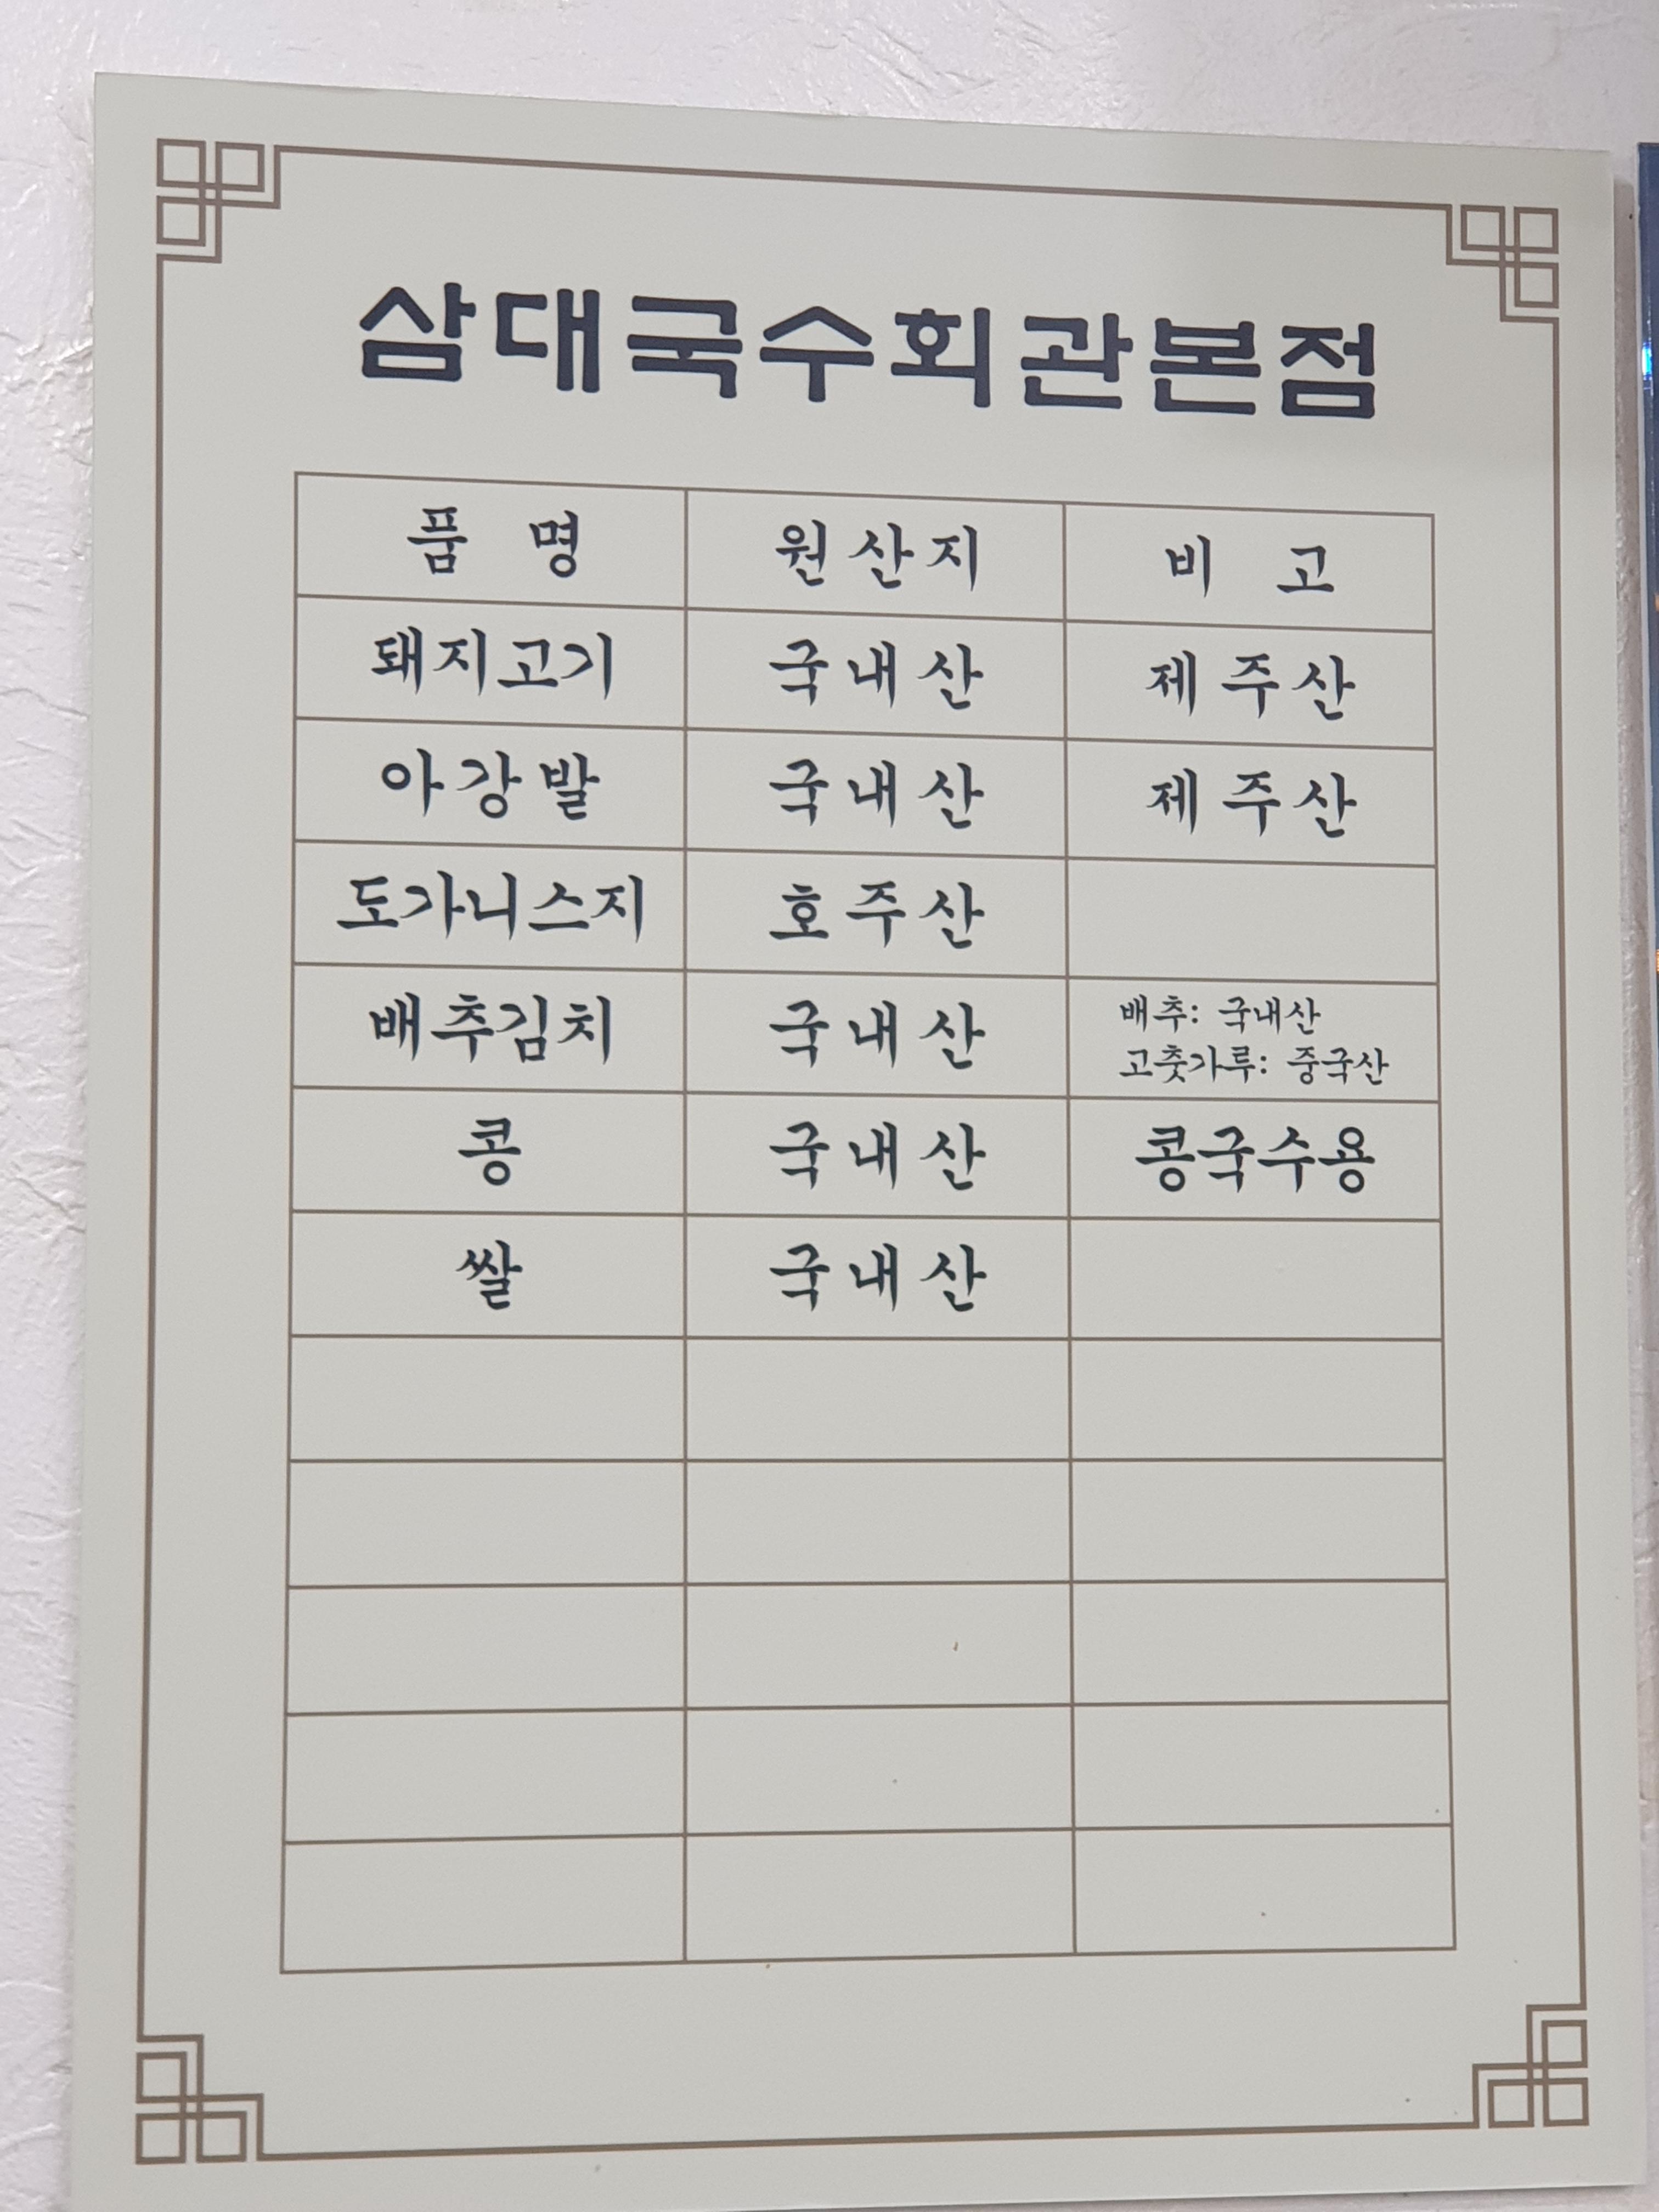 삼대국수회관본점
품 명 원산지 비 고
돼지고기 국내산 제주산
아강발 국내산 제주산
도가니스지 호주산
배추김치 국내산 배추: 국내산
고춧가루: 중국산
콩 국내산 콩국수용
쌀 국내산